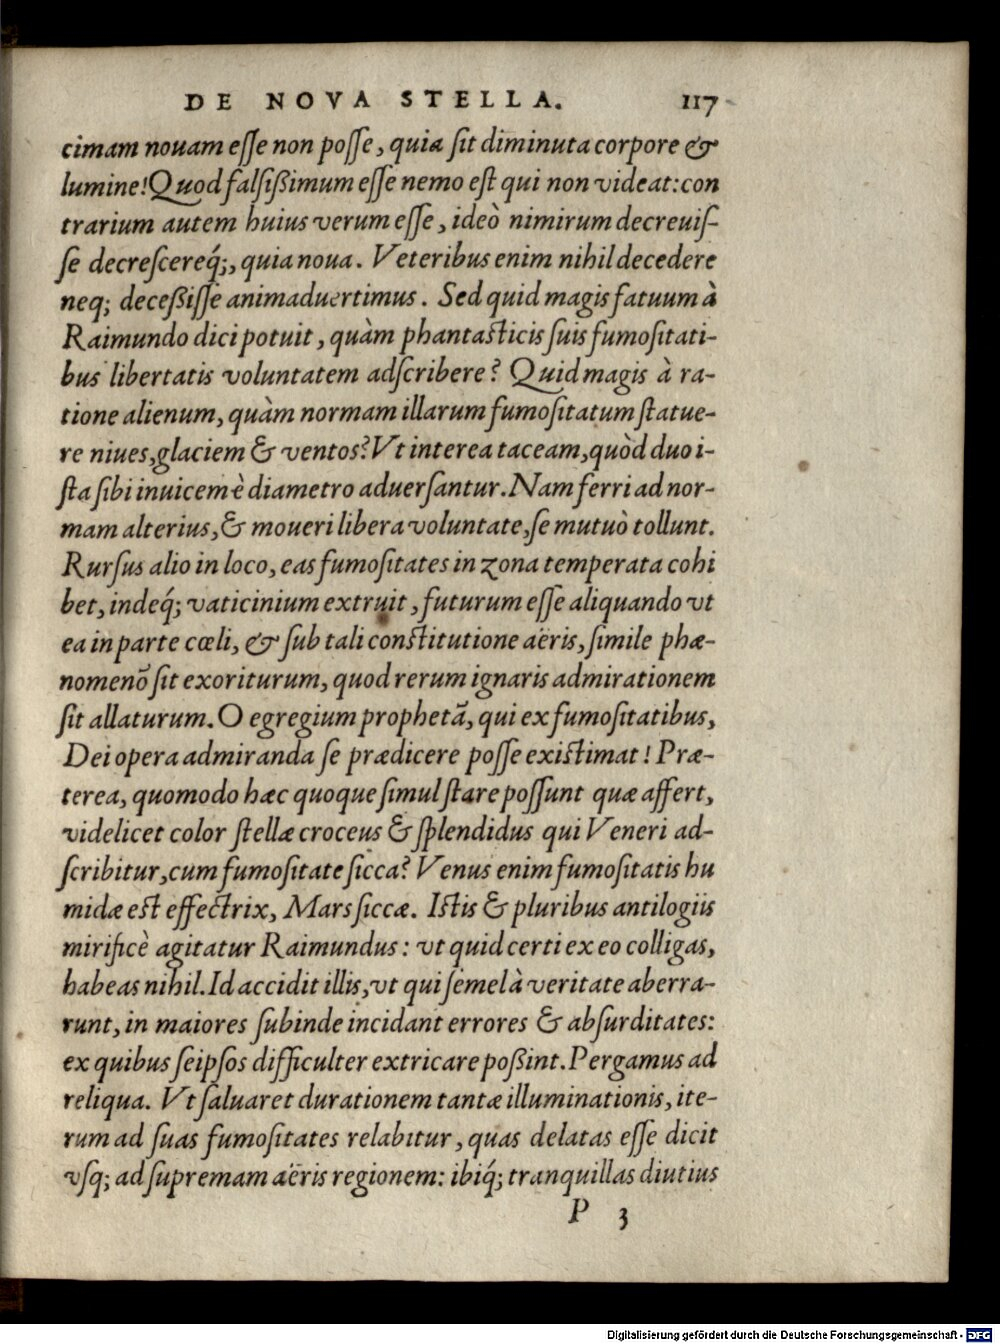 DE NOVA STELLA. 117
cimam nouam eſſe non poſſe, quia ſit diminuta corpore &
lumine! Quod falſiſſimum eſſe nemo eſt qui non videat: con
trarium autem huius verum eſſe, ideò nimirum decreuiſ-
ſe decreſcereq́;, quia noua. Veteribus enim nihil decedere
neq; deceßiſſe animaduertimus. Sed quid magis fatuum à
Raimundo dici potuit, quàm phantaſticis ſuis fumoſitati-
bus libertatis voluntatem adſcribere? Quid magis à ra-
tione alienum, quàm normam illarum fumoſitatum ſtatue-
re niues, glaciem & ventos? Vt interea taceam, quòd duo i-
ſta ſibi inuicem è diametro aduerſantur. Nam ferri ad nor-
mam alterius, & moueri libera voluntate, ſe mutuò tollunt.
Rurſus alio in loco, eas fumoſitates in zona temperata cohi
bet, indeq́; vaticinium extruit, futurum eſſe aliquando vt
ea in parte cœli, & ſub tali conſtitutione aëris, ſimile phæ-
nomenō ſit exoriturum, quod rerum ignaris admirationem
ſit allaturum. O egregium prophetā, qui ex fumoſitatibus,
Dei opera admiranda ſe prædicere poſſe exiſtimat! Præ-
terea, quomodo hæc quoque ſimul ſtare poſſunt quæ affert,
videlicet color ſtellæ croceus & ſplendidus qui Veneri ad-
ſcribitur, cum fumoſitate ſicca? Venus enim fumoſitatis hu
midæ eſt effectrix, Mars ſiccæ. Iſtis & pluribus antilogiis
mirificè agitatur Raimundus: vt quid certi ex eo colligas,
habeas nihil. Id accidit illis, vt qui ſemel à veritate aberra-
runt, in maiores ſubinde incidant errores & abſurditates:
ex quibus ſeipſos difficulter extricare poßint. Pergamus ad
reliqua. Vt ſaluaret durationem tantæ illuminationis, ite-
rum ad ſuas fumoſitates relabitur, quas delatas eſſe dicit
vſq; ad ſupremam aëris regionem: ibiq́; tranquillas diutius
P 3
Digitalisierung gefördert durch die Deutsche Forschungsgemeinschaft - DFG